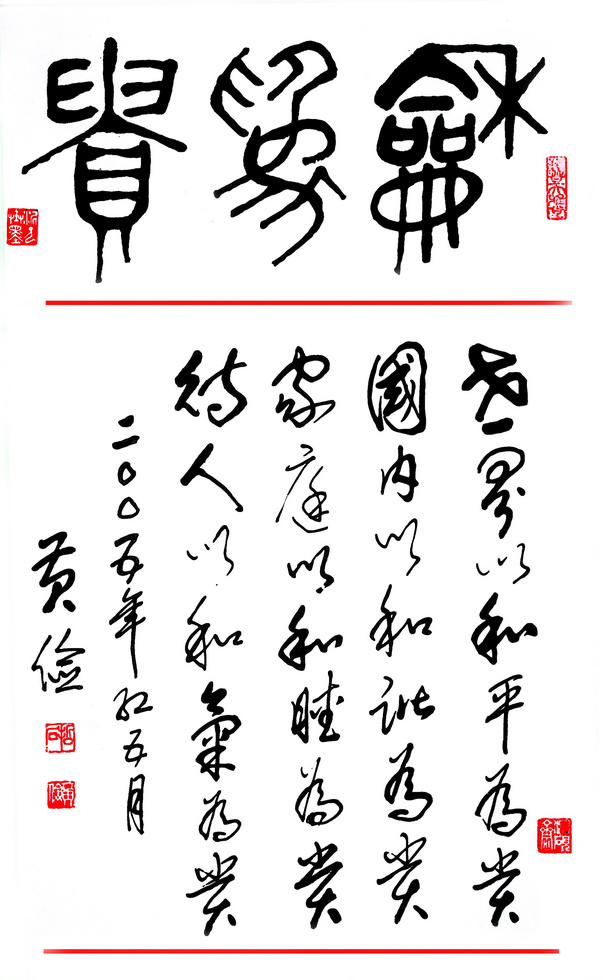 龢為貴
世界以和平為贵
國内以和諧為贵
家庭以和睦為贵
待人以和氣為贵
二〇〇五年红五月
黄俭